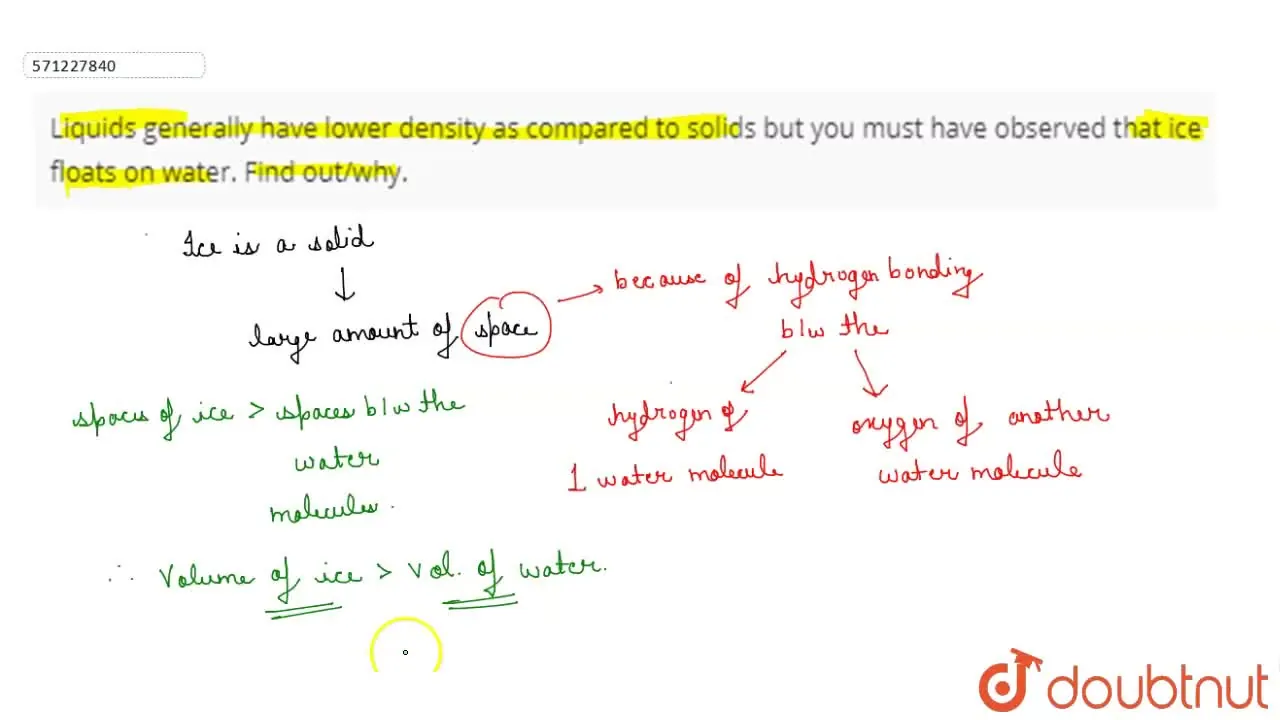 571227840
Liquids generally have lower density as compared to solids but you must have observed that ice
floats on water. Find out/why.
Ice is a solid
large amount of space
because of hydrogen bonding
b/w the
hydrogen of
1 water molecule
oxygen of another
water molecule
spaces of ice > spaces b/w the
water
molecules.
∴ Volume of ice > Vol. of water.
doubtnut